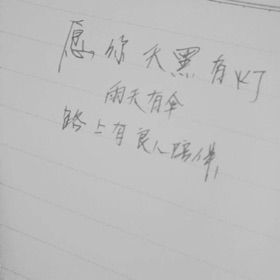 愿你天黑有灯
雨天有伞
路上有良人陪伴